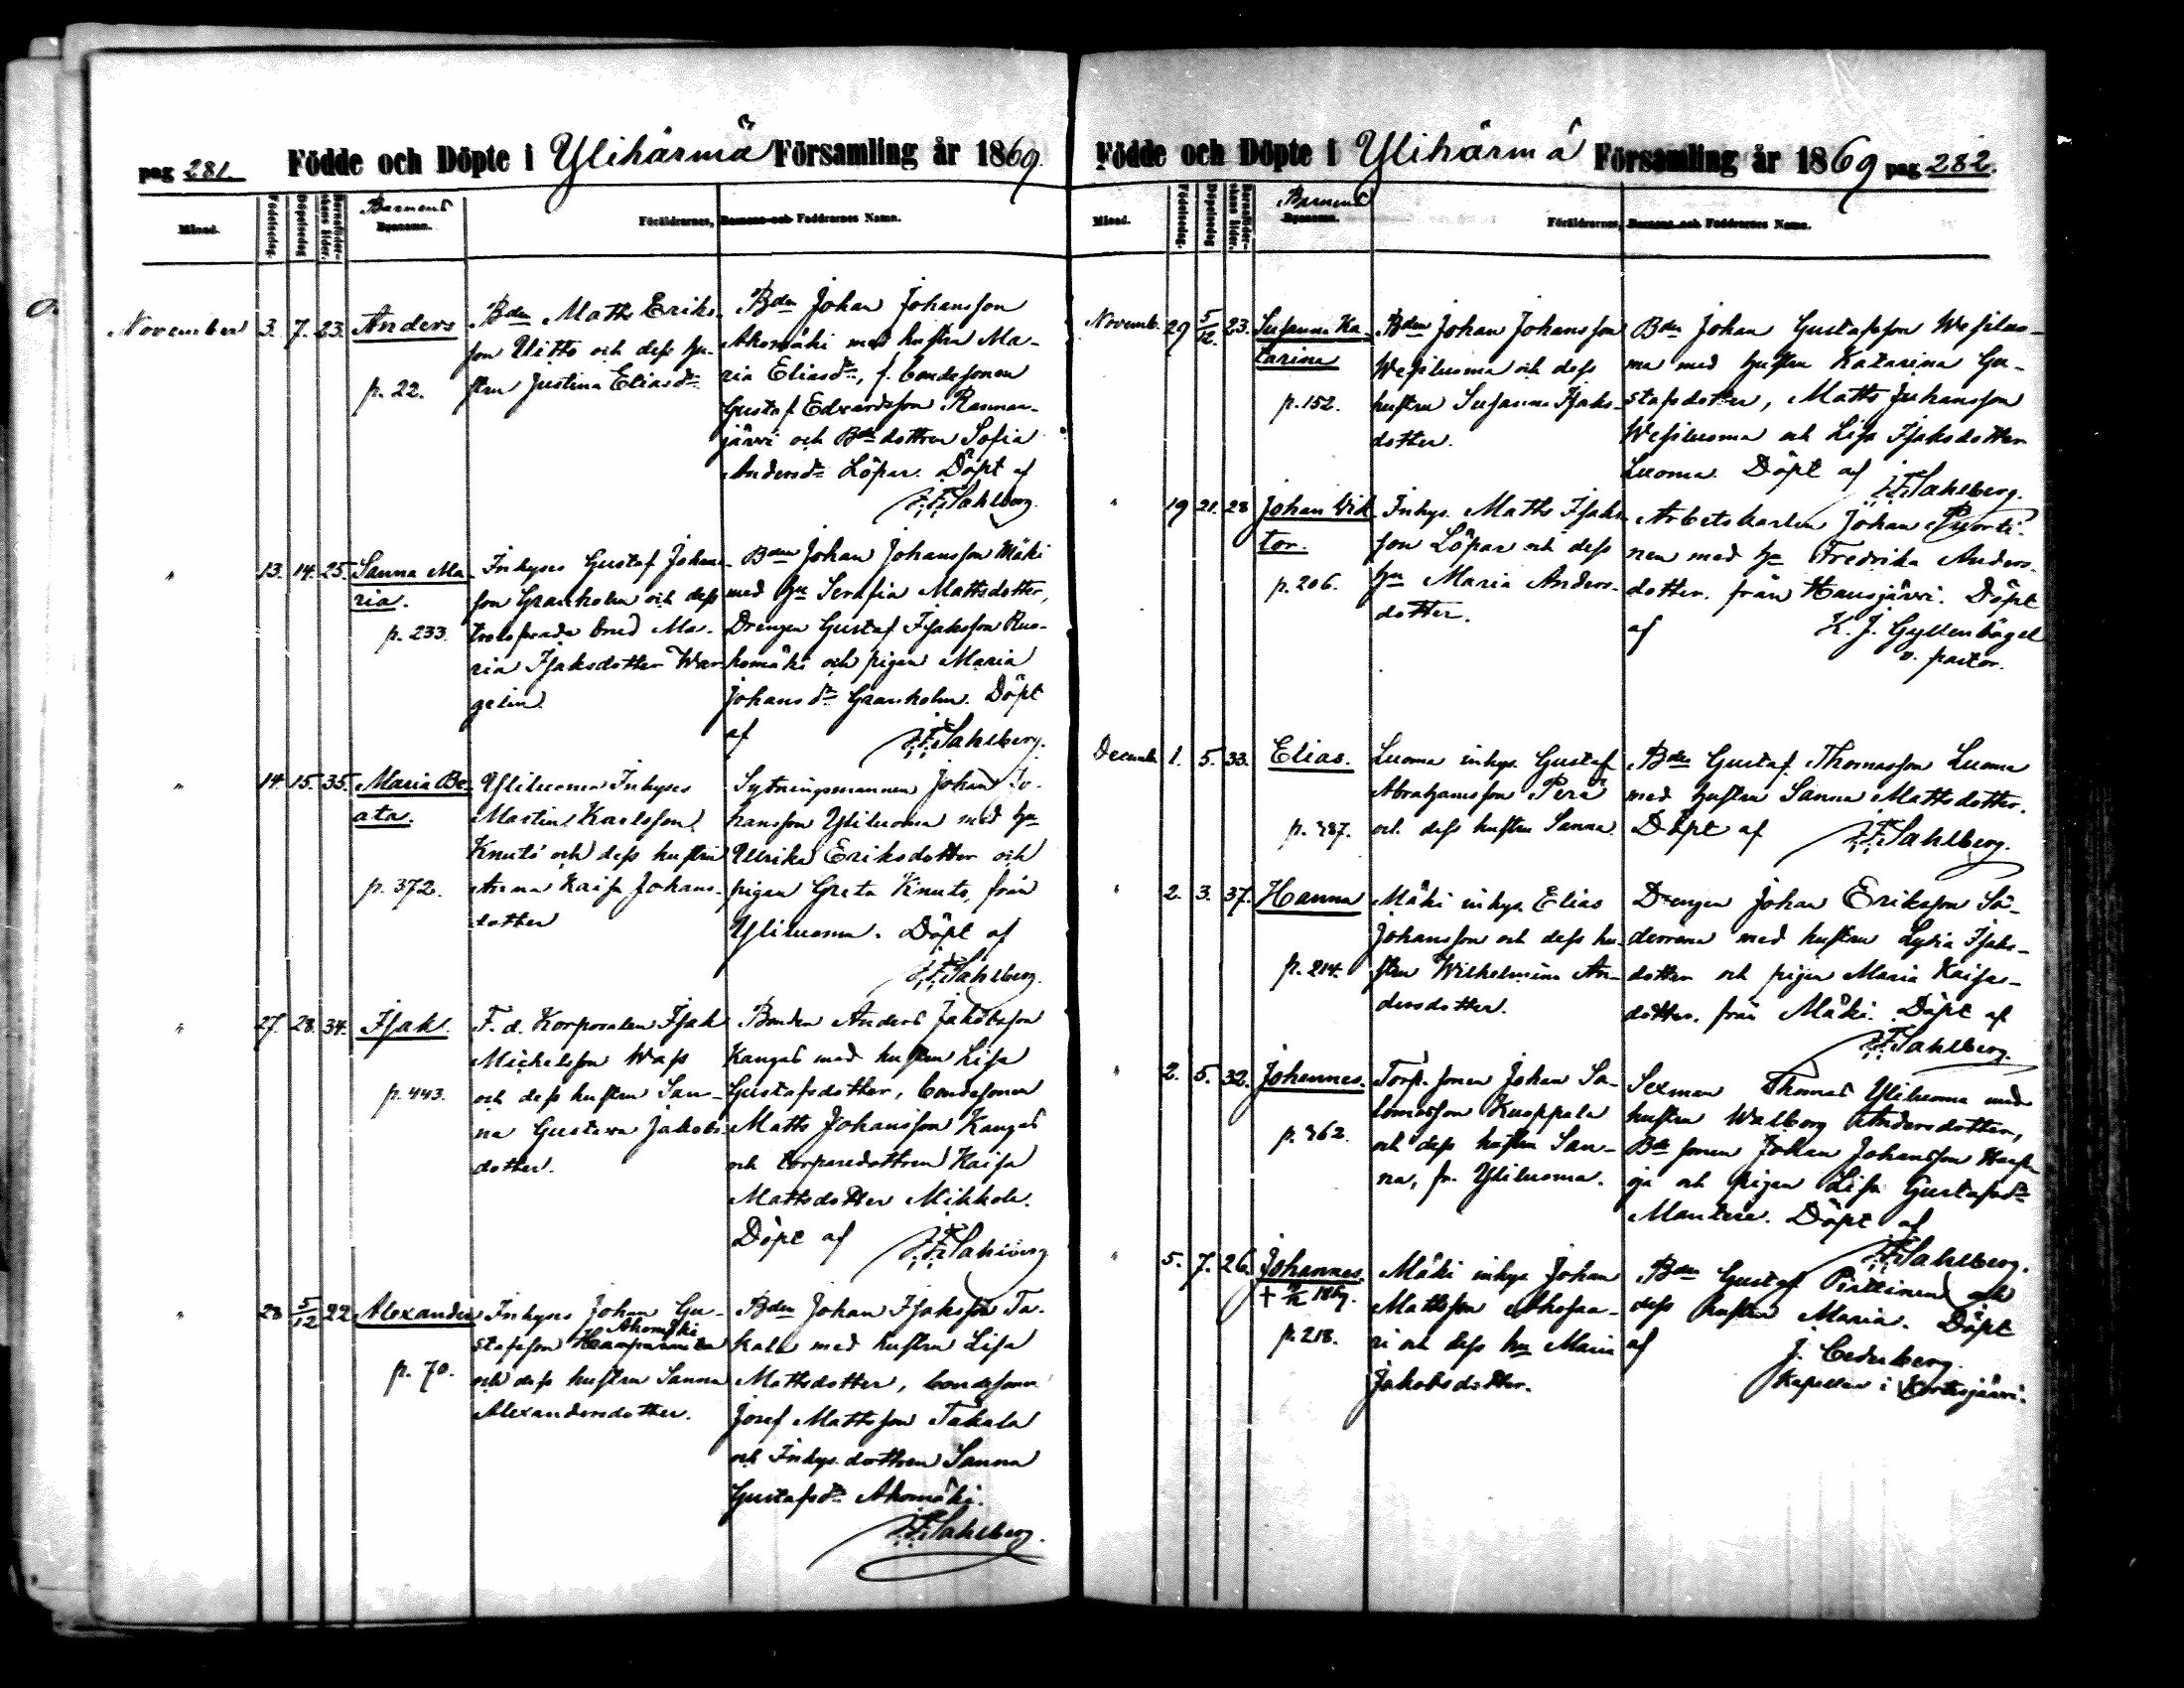 pag 281. Födde och Döpte i Ylihärmä Församling år 1869.
Månad. Födelsedag. Döpelsedag Barnaföderskans ålder. Barnens Byanamn. Föräldrarnes, Barnens och Faddrarnes Namn.
November 3. 7. 23. Anders
p. 22.
Bden Matts Eriks-
son Ulitto och dess hu-
stru Justina Eliasdr
Bden Johan Johansson
Ahomäki med hustru Ma-
ria Eliasdr, f. bondesonen
Gustaf Edvardsson Rannan-
järvi och Bdedottren Sofia
Andersdr Löpar. Döpt af
J.F. Sahlberg.
" 13. 14. 25. Sanna Ma-
ria.
p. 233.
Inhyses Gustaf Johans-
son Granholm och dess
trolofvade brud Ma-
ria Isaksdotter War-
gelin.
Bden Johan Johansson Mäki
med hu Serafia Mattsdotter,
Drengen Gustaf Isaksson Ruo-
homäki och pigan Maria
Johansdr Granholm. Döpt
af J.F. Sahlberg.
" 14. 15. 35. Maria Be-
ata.
p. 372.
Yliluoma Inhyses
Martin Karlsson
Knuts och dess hustru
Anna Kaisa Johans-
dotter
Sytningsmannen Johan Jo-
hansson Yliluoma med hu
Ulrika Eriksdotter och
pigan Greta Knuts, från
Yliluoma. Döpt af
J.F. Sahlberg.
" 27. 28. 34. Isak.
p. 443.
F. d. Korporalen Isak
Michelsson Wass
och dess hustru San-
na Gustava Jakobs-
dotter.
Bonden Anders Jakobsson
Kangas med hustru Lisa
Gustafsdotter, bondesonen
Matts Johansson Kangas
och torparedottren Kaisa
Mattsdotter Mikkola.
Döpt af J.F. Sahlberg
" 28 5/12 22 Alexander
p. 70.
Inhyses Johan Gu-
Ahomäki
stafsson
och dess hustru Sanna
Alexandersdotter.
Bden Johan Isaksson Ta-
kala med hustru Lisa
Mattsdotter, bondesonen
Josef Mattsson Takala
och Inhys. dottren Sanna
Gustafsdr Ahomäki.
J.F. Sahlberg.
Födde och Döpte i Ylihärmä Församling år 1869 pag 282.
Månad. Födelsedag. Döpelsedag Barnaföderskans ålder. Barnens Byanamn. Föräldrarnes, Barnens och Faddrarnes Namn.
Novemb. 29 5/12. 23. Susanna Ka-
tarina
p. 152.
Bden Johan Johansson
Wesiluoma och dess
hustru Susanna Isaks-
dotter.
Bden Johan Gustafsson Wesiluo-
ma med hustru Katarina Gu-
stafsdotter, Matts Juhansson
Wesiluoma och Lisa Isaksdotter
Luoma. Döpt af J.F. Sahlberg.
" 19 21. 28 Johan Wik-
tor.
p. 206.
Inhys. Matts Isaks-
son Löpar och dess
hu Maria Anders-
dotter.
Arbetskarlen Johan Puorti-
nen med hu Fredrika Anders-
dotter. från Hausjärvi. Döpt
af K. J. Gyllenbögel
v. pastor.
Decemb. 1. 5. 33. Elias.
p. 387.
Luoma inhys. Gustaf
Abrahamsson Perä
och dess hustru Sanna.
Bden Gustaf Thomasson Luoma
med hustru Sanna Mattsdotter.
Döpt af J.F. Sahlberg.
" 2. 3. 37. Hanna
p. 214.
Mäki inhys. Elias
Johansson och dess hu-
stru Wilhelmina An-
dersdotter.
Drengen Johan Eriksson Sö-
derrena med hustru Lydia Isaks-
dotter och pigan Maria Kaisas-
dotter. från Mäki. Döpt af
J.F. Sahlberg.
" 2. 5. 32. Johannes.
p. 362.
Torp. sonen Johan Sa-
lomosson Kuoppala
och dess hustru San-
na, fr. Yliluoma.
Sexman Thomas Yliluoma med
hustru Walborg Andersdotter,
Bde sonen Johan Johansson
oja och pigan Lisa Gustafsdr
Mantere. Döpt af
J.F. Sahlberg.
" 5. 7. 26. Johannes.
p. 218.
Mäki inhys. Johan
Mattsson Ahosaa-
ri och dess hu Maria
Jakobsdotter.
Bden Gustaf Piattinen och
dess hustru Maria. Döpt
af J. Cederberg.
Kapellan i Kortesjärvi.